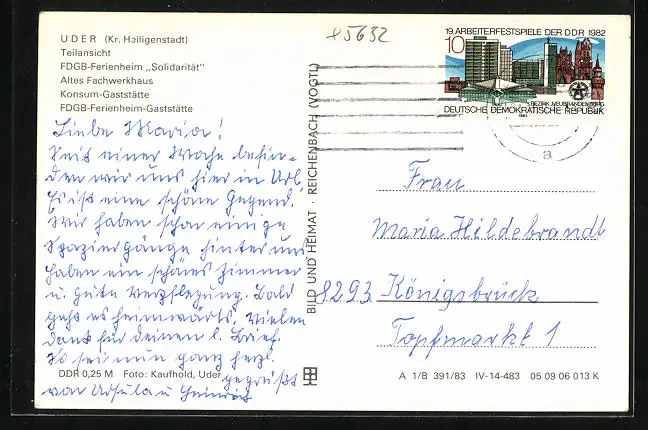 UDER (Kr. Heiligenstadt)
Teilansicht
FDGB-Ferienheim „Solidarität"
Altes Fachwerkhaus
Konsum-Gaststätte
FDGB-Ferienheim-Gaststätte
Liebe Maria!
Seit einer Woche befin-
den wir uns hier in Url.
Es ist eine schöne Gegend.
Wir haben schon einige
Spaziergänge hinter uns
haben ein schönes Zimmer
u. gute Verpflegung. Bald
geht es heimwärts. Vielen
Dank für deinen l. Brief.
So sei nun ganz herzl.
gegrüßt
von Ursula u Heinrich
DDR 0,25 M Foto: Kaufhold, Uder
BILD UND HEIMAT · REICHENBACH (VOGTL)
5632
19. ARBEITERFESTSPIELE DER DDR 1982
10
BEZIRK NEUBRANDENBURG
DEUTSCHE DEMOKRATISCHE REPUBLIK
1982
a
Frau
Maria Hildebrandt
8293 Königsbrück
Topfmarkt 1
A 1/B 391/83 IV-14-483 05 09 06 013 K